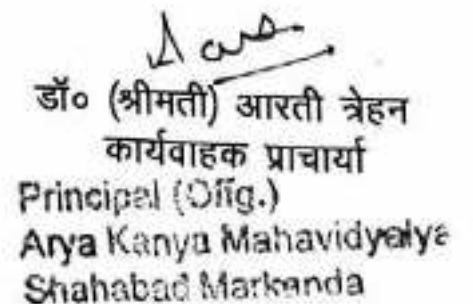 डॉ० (श्रीमती) आरती त्रेहन
कार्यवाहक प्राचार्या
Principal (Offg.)
Arya Kanya Mahavidyalya
Shahabad Markanda